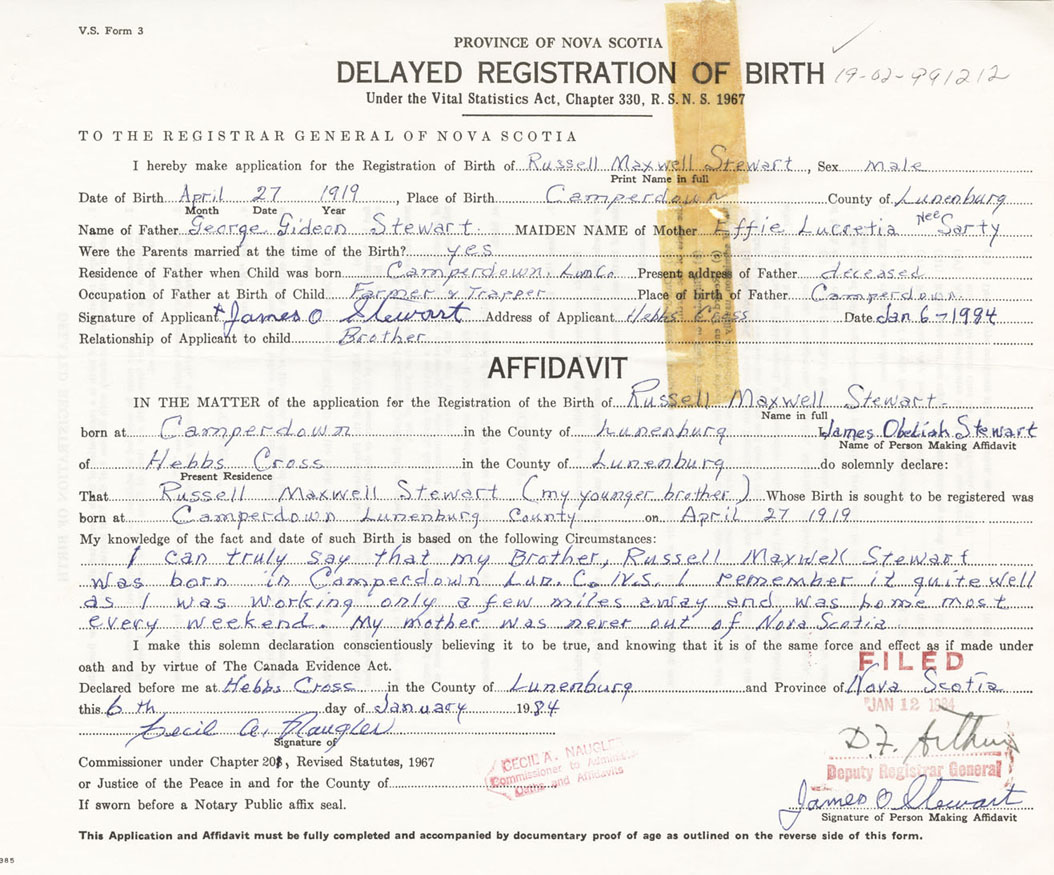 V.S. Form 3
PROVINCE OF NOVA SCOTIA
DELAYED REGISTRATION OF BIRTH 19-02-991212
Under the Vital Statistics Act, Chapter 330, R.S.N.S. 1967
TO THE REGISTRAR GENERAL OF NOVA SCOTIA
I hereby make application for the Registration of Birth of Russell Maxwell Stewart, Sex male
Print Name in full
Date of Birth April 27 1919, Place of Birth Camperdown County of Lunenburg
Month Date Year
Name of Father George Gideon Stewart MAIDEN NAME of Mother Effie Lucretia Nee Sarty
Were the Parents married at the time of the Birth? yes
Residence of Father when Child was born Camperdown, Lun Co Present address of Father deceased
Occupation of Father at Birth of Child Farmer & Trapper Place of birth of Father Camperdown
Signature of Applicant x James O Stewart Address of Applicant Hebbs Cross Date Jan 6-1984
Relationship of Applicant to child Brother
AFFIDAVIT
IN THE MATTER of the application for the Registration of the Birth of Russell Maxwell Stewart
Name in full
born at Camperdown in the County of Lunenburg I, James Obediah Stewart
Name of Person Making Affidavit
of Hebbs Cross in the County of Lunenburg do solemnly declare:
Present Residence
That Russell Maxwell Stewart (my younger brother) Whose Birth is sought to be registered was
born at Camperdown Lunenburg County on April 27 1919
My knowledge of the fact and date of such Birth is based on the following Circumstances:
I can truly say that my Brother, Russell Maxwell Stewart
was born in Camperdown Lun. Co. N.S. I remember it quite well
as I was working only a few miles away and was home most
every weekend. My mother was never out of Nova Scotia
I make this solemn declaration conscientiously believing it to be true, and knowing that it is of the same force and effect as if made under
oath and by virtue of The Canada Evidence Act.
FILED
Declared before me at Hebbs Cross in the County of Lunenburg and Province of Nova Scotia
JAN 12 1984
this 6th day of January 1984
Cecil A. Naugler
D.F. Arthur
Signature of
CECIL A. NAUGLER
Commissioner to Administer
Oaths and Affidavits
Commissioner under Chapter 208, Revised Statutes, 1967
Deputy Registrar General
or Justice of the Peace in and for the County of
James O Stewart
If sworn before a Notary Public affix seal.
Signature of Person Making Affidavit
This Application and Affidavit must be fully completed and accompanied by documentary proof of age as outlined on the reverse side of this form.
385